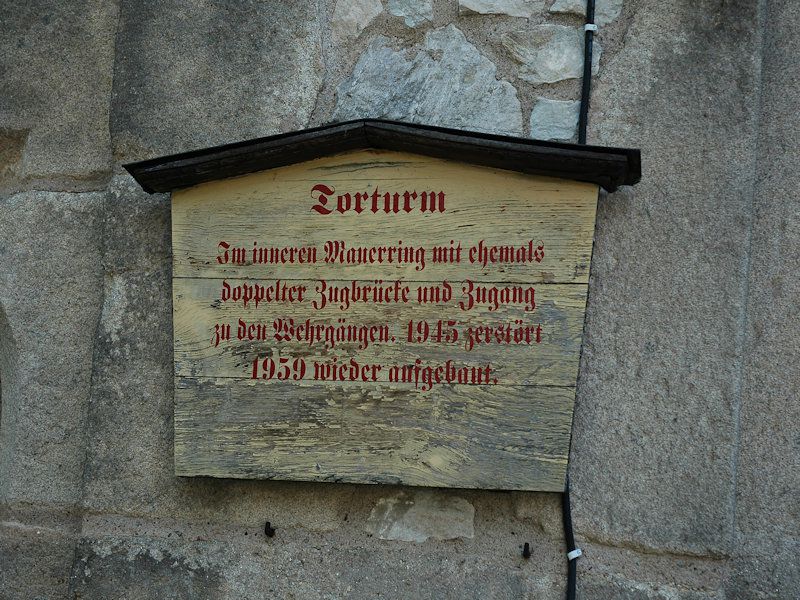 Torturm
Im inneren Mauerring mit ehemals
doppelter Zugbrücke und Zugang
zu den Wehrgängen. 1945 zerstört
1959 wieder aufgebaut.